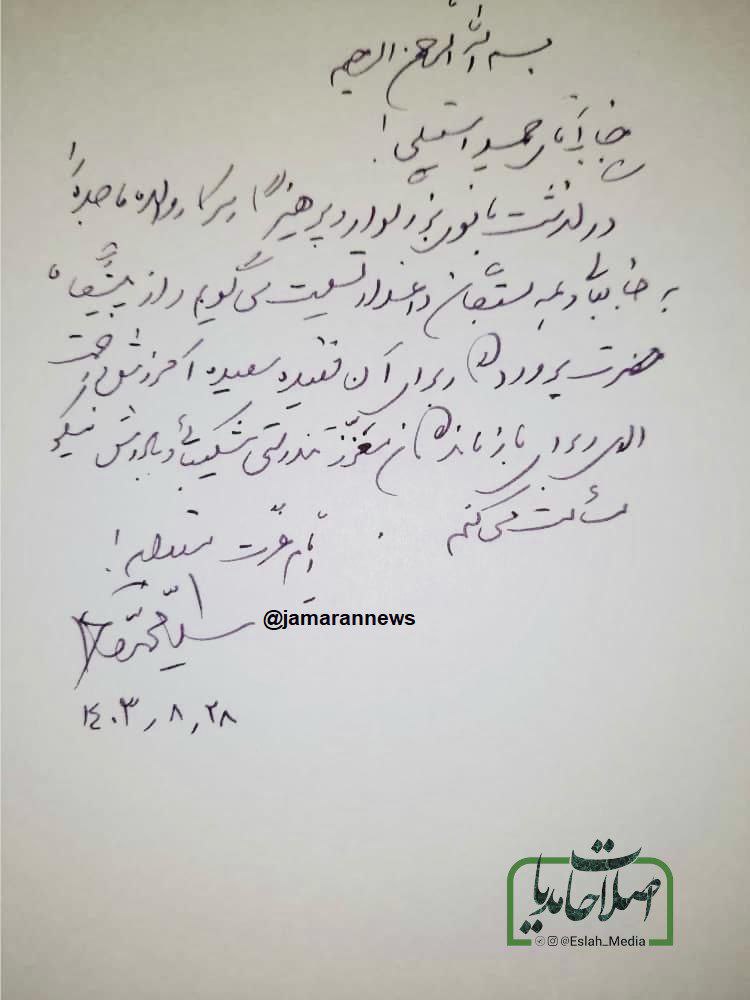 بسم الله الرحمن الرحیم
جناب آقای حمید استیلی!
درگذشت بانوی بزرگوار و پرهیزگار سرکار والده ماجده را
به جنابعالی و همه بستگان داغدار تسلیت می‌گویم و از پیشگاه
حضرت پروردگار برای آن فقیده سعیده آمرزش و رحمت
الهی و برای بازماندگان معزّز تندرستی شکیبائی و پاداش نیکو
مسألت می‌کنم.
ایام عزت مستدام!
سید محمد خاتمی
@jamarannews
۱۴۰۳٫۸٫۲۸
اصلاحات مدیا
@Eslah_Media